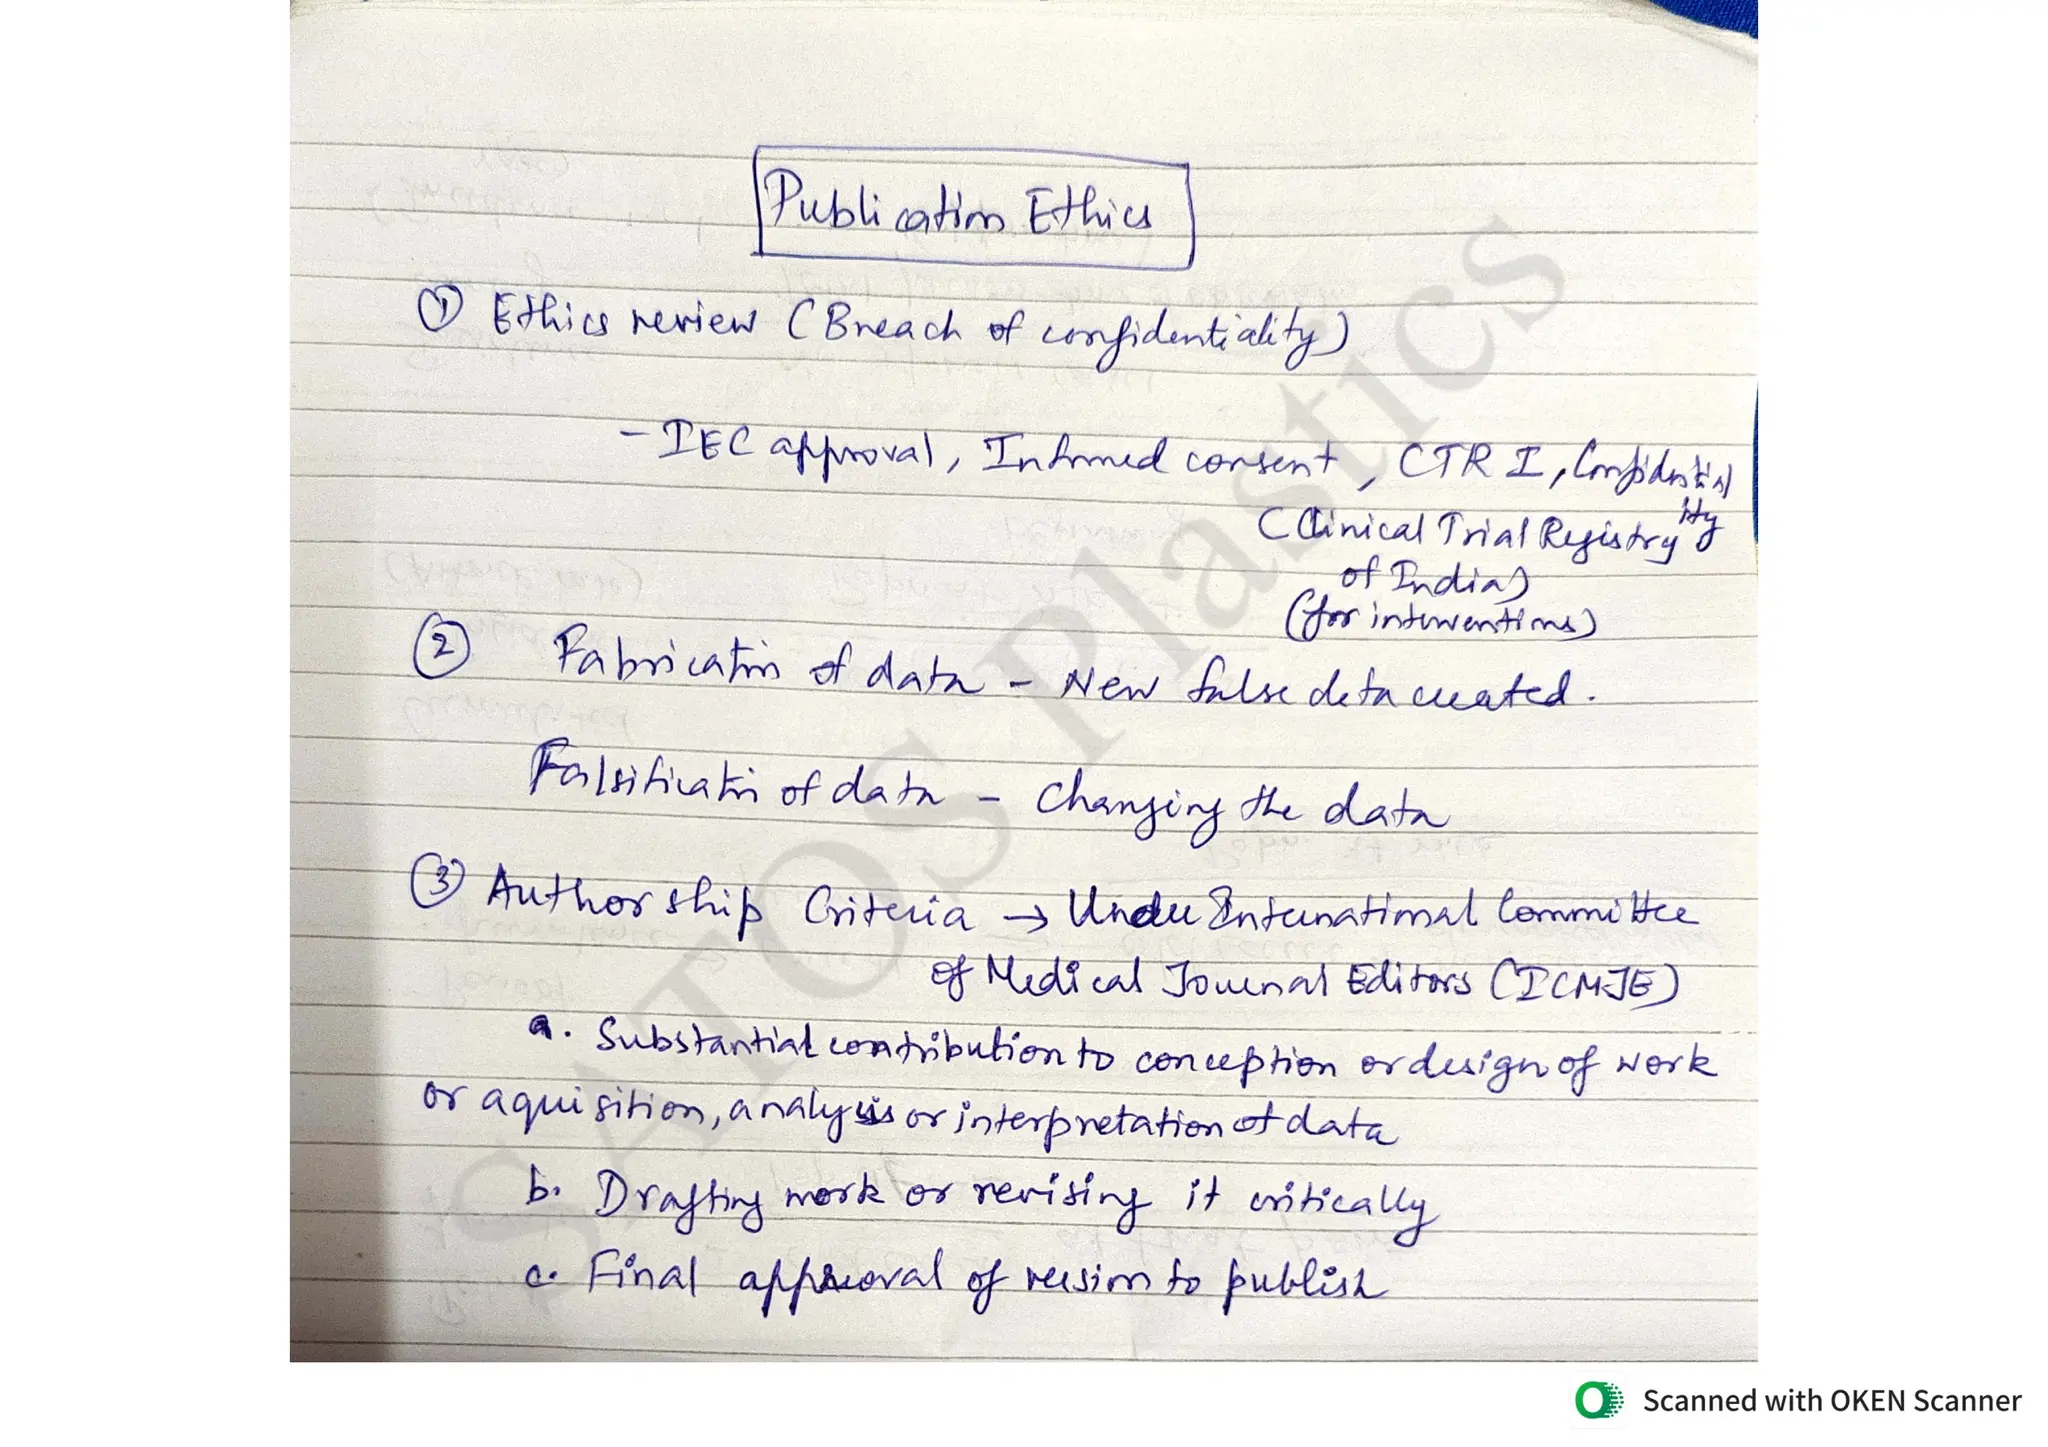 Publication Ethics
① Ethics review (Breach of confidentiality)
- IEC approval, Informed consent, CTRI, Confidential
ity
(Clinical Trial Registry
of India)
(for interventions)
② Fabrication of data - New false data created.
Falsification of data - Changing the data
③ Authorship Criteria → Under International Committee
of Medical Journal Editors (ICMJE)
a. Substantial contribution to conception or design of work
or aquisition, analysis or interpretation of data
b. Drafting work or revising it critically
c. Final approval of version to publish
SATOS Plastics
Scanned with OKEN Scanner